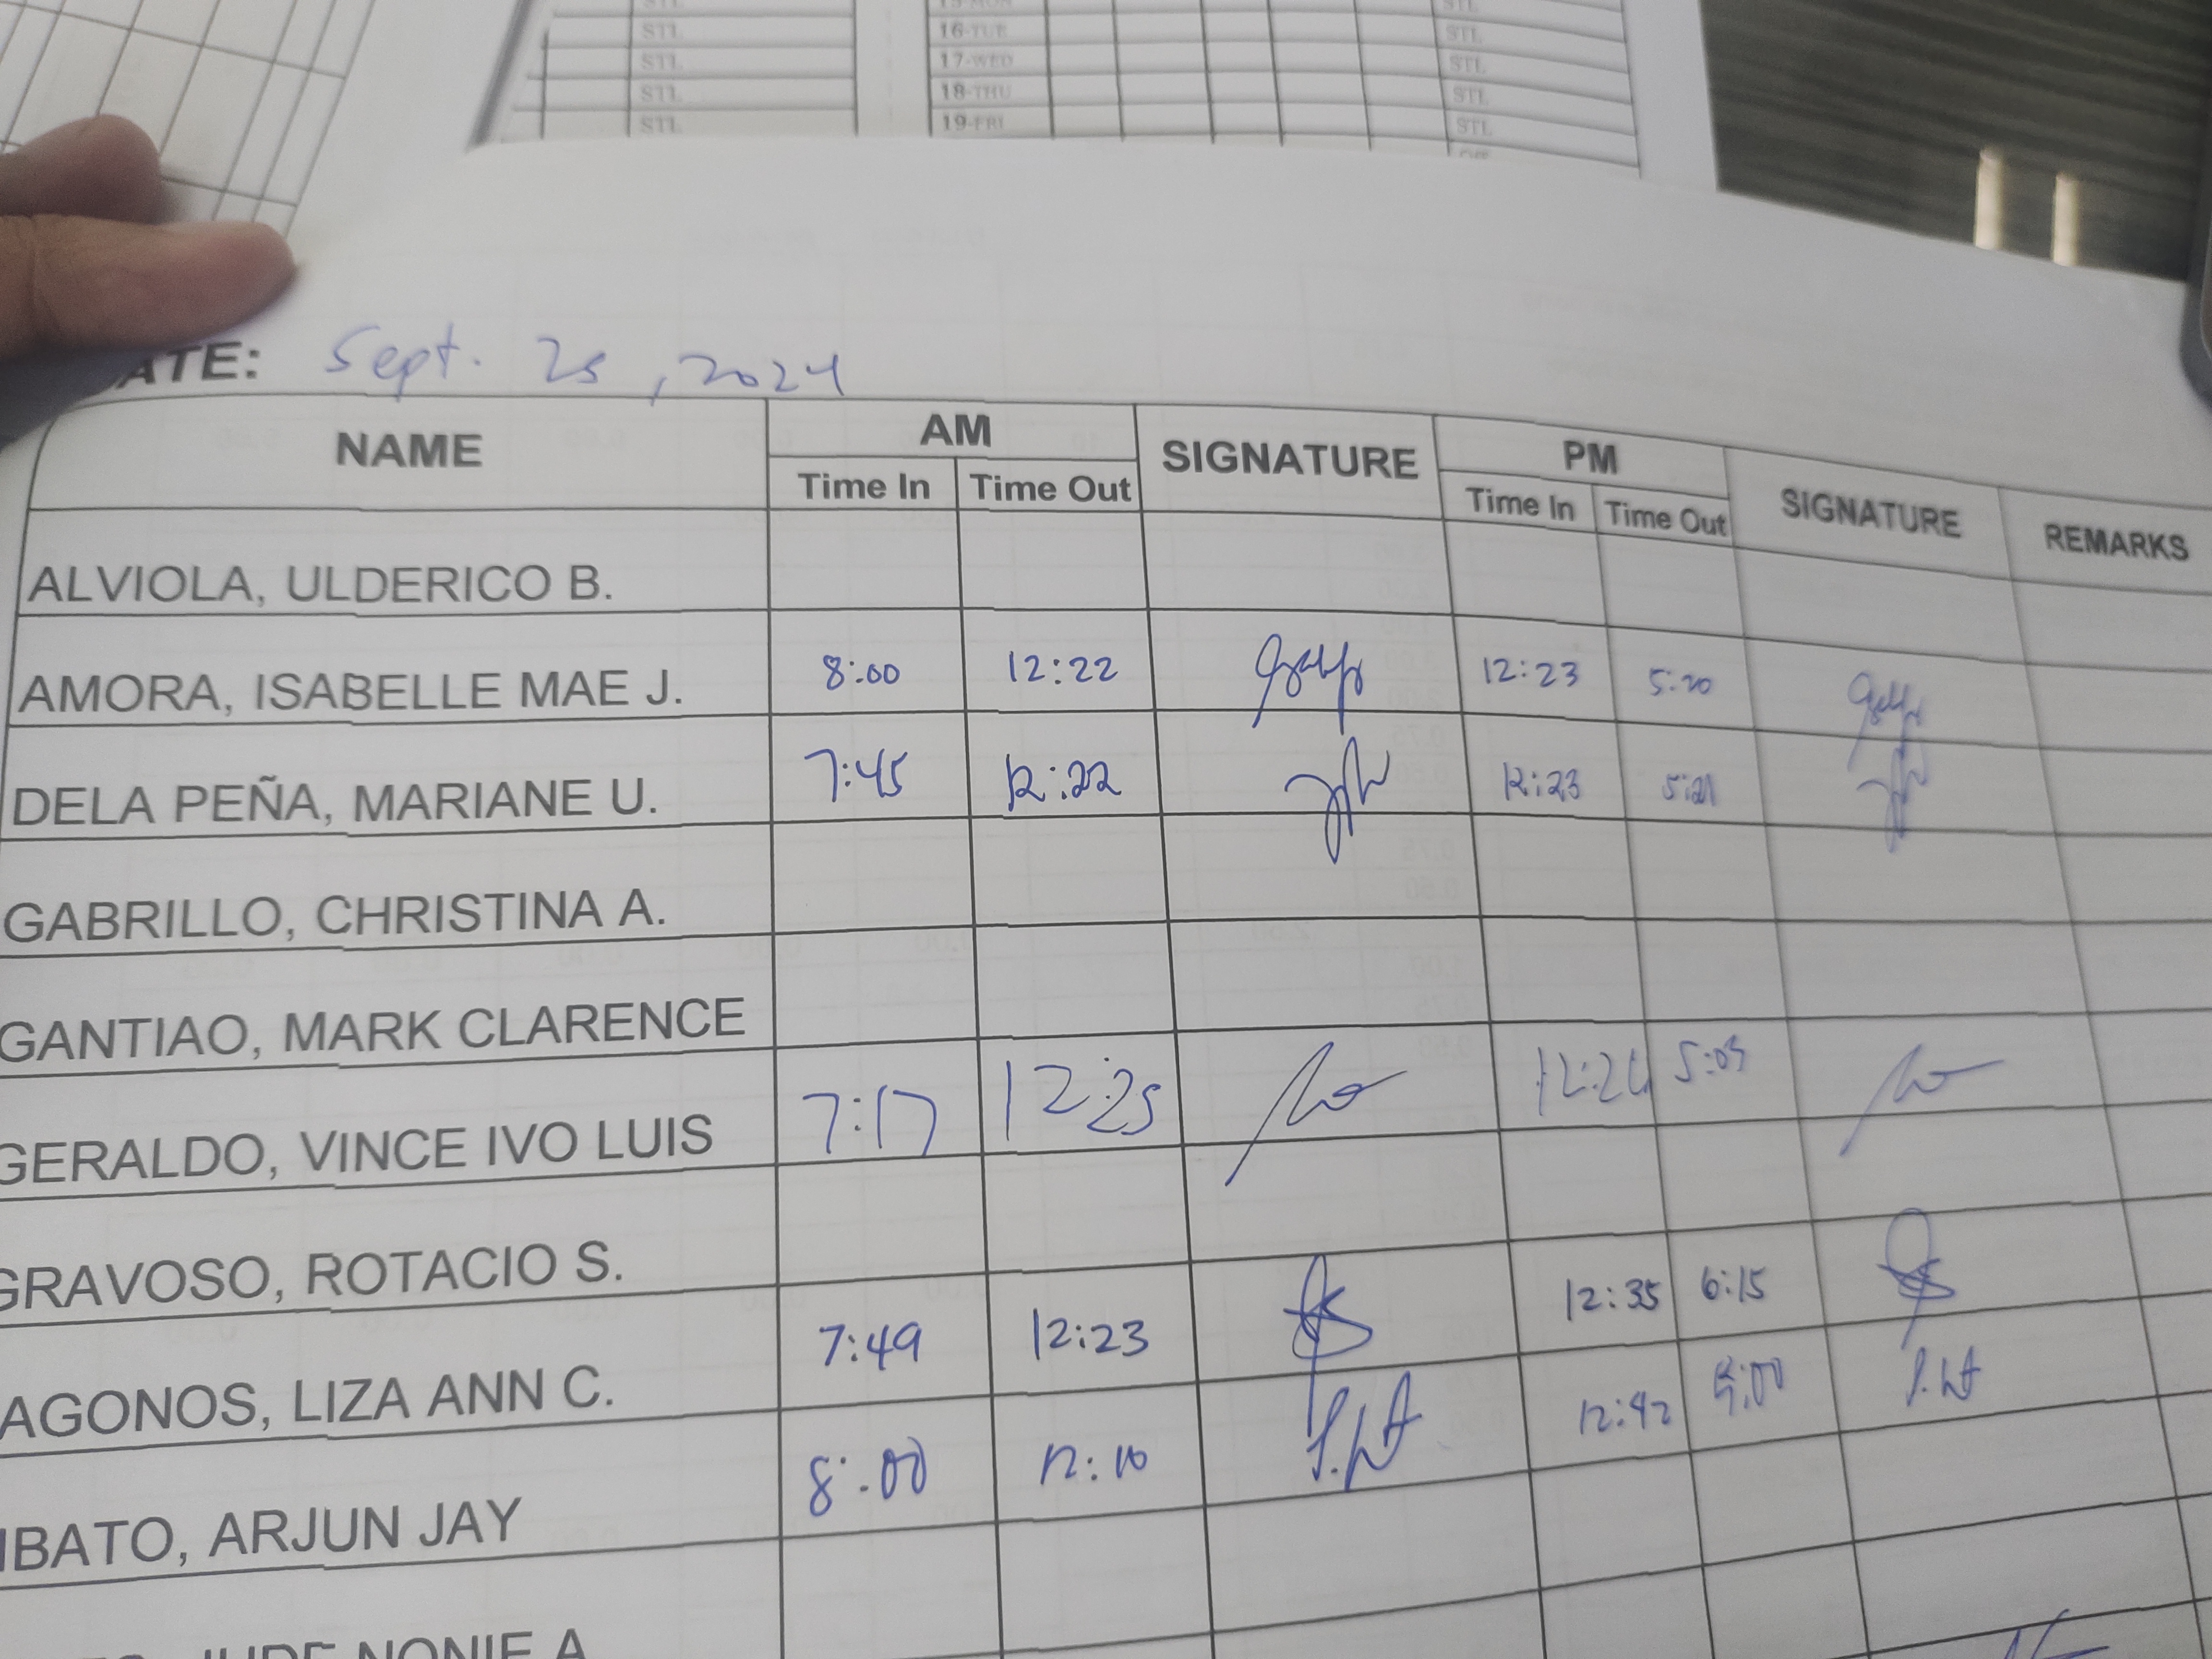 STL 16-TUE STL
STL 17-WED STL
STL 18-THU STL
STL 19-FRI STL
ATE: Sept. 25, 2024
NAME AM SIGNATURE PM SIGNATURE REMARKS
Time In Time Out Time In Time Out
ALVIOLA, ULDERICO B.
AMORA, ISABELLE MAE J. 8:00 12:22 12:23 5:20
DELA PEÑA, MARIANE U. 7:45 12:22 12:23 5:21
GABRILLO, CHRISTINA A.
GANTIAO, MARK CLARENCE
GERALDO, VINCE IVO LUIS 7:17 12:25 5:05
GRAVOSO, ROTACIO S.
AGONOS, LIZA ANN C. 7:49 12:23 12:35 6:15
IBATO, ARJUN JAY 8:00 12:10 12:42 5:00
JUDE NONIE A